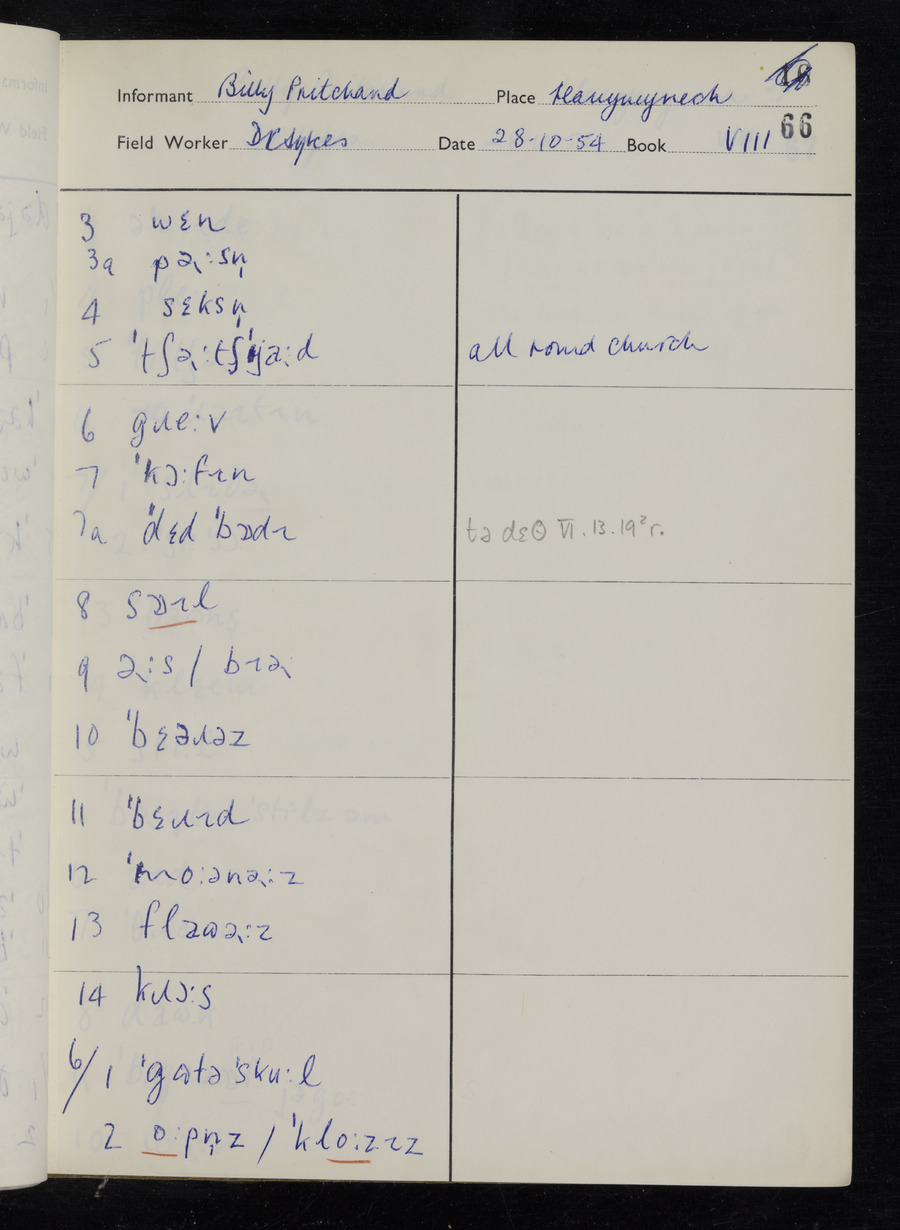 Informant Billy Pritchard Place Llanymynech
66
Field Worker DR Sykes Date 28-10-54 Book VIII
3 wɛn
3a pə˞:sn̩
4 sɛksn̩
5 all round church
6 gɹe:v
7 ˈkɔ:fɪn
7a ˈdɛd ˈbɒdɪ tə dɛθ VI.13.19²r.
8 sɒɪl
9 ə˞:s / bɪə˞
10 ˈbɛəɹəz
11 ˈbɛɹɪd
12 ˈmo:ənə˞:z
13 flaʊə˞:z
14 kɹɔ:s
6/1 ˈgʊtə ˈsku:l
2 o:pn̩z / ˈklo:zɪz